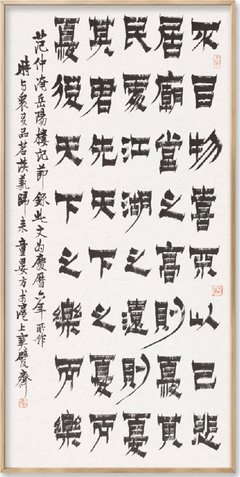 不以物喜不以己悲
居廟堂之高則憂其
民處江湖之遠則憂
其君先天下之憂而
憂後天下之樂而樂
范仲淹岳陽樓記節錄此文為慶曆六年所作
時与衆友品茗談藝歸来童晏方書滬上寶甓齋